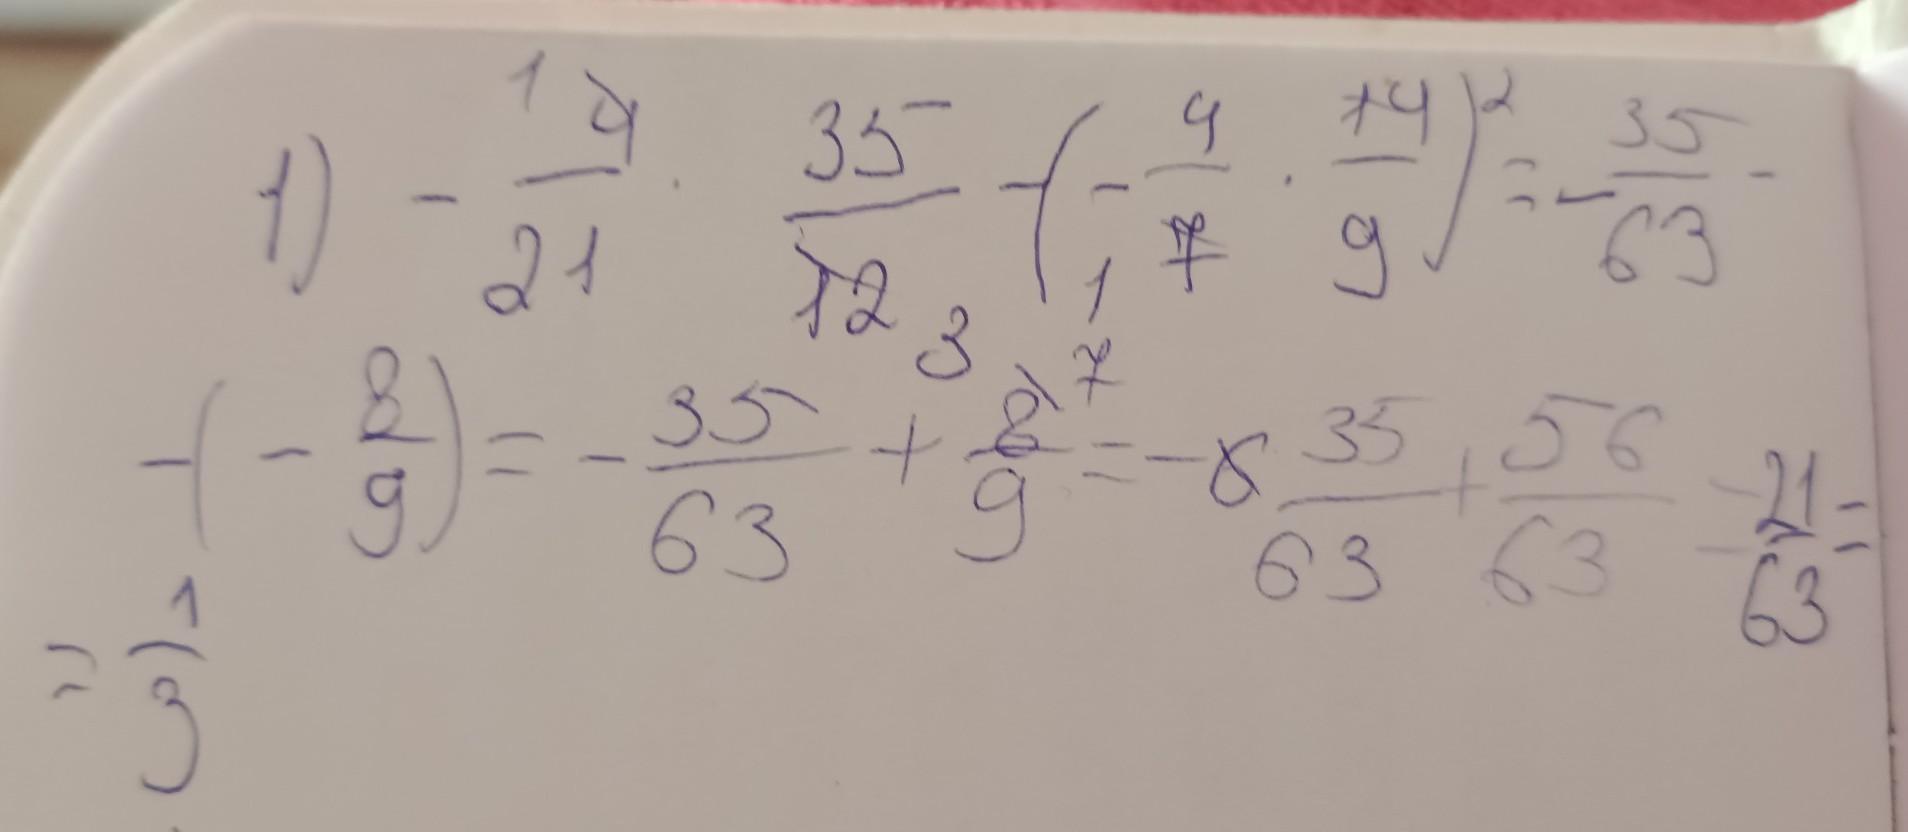 1) - 1 4/21 · 35/12 3 - (- 4/7 1 · 14/9)² = - 35/63 -
- (- 8/9) = - 35/63 + 8/9 7 = - 35/63 + 56/63 = 21/63 =
= 1/3